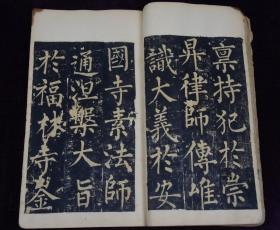 禀持犯於崇
昇律師傳唯
識大義於安
國寺素法師
通涅槃大旨
於福林寺崟